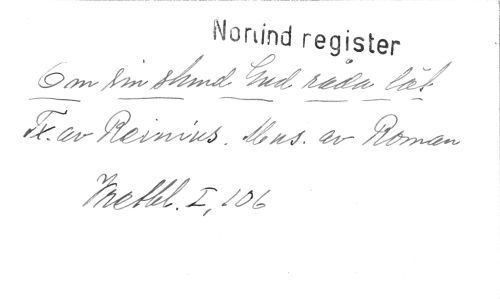 Norlind register
Om sin stund Gud råda låt
Tx. av Reinius. Mus. av Roman
Wrettbl. I, 106